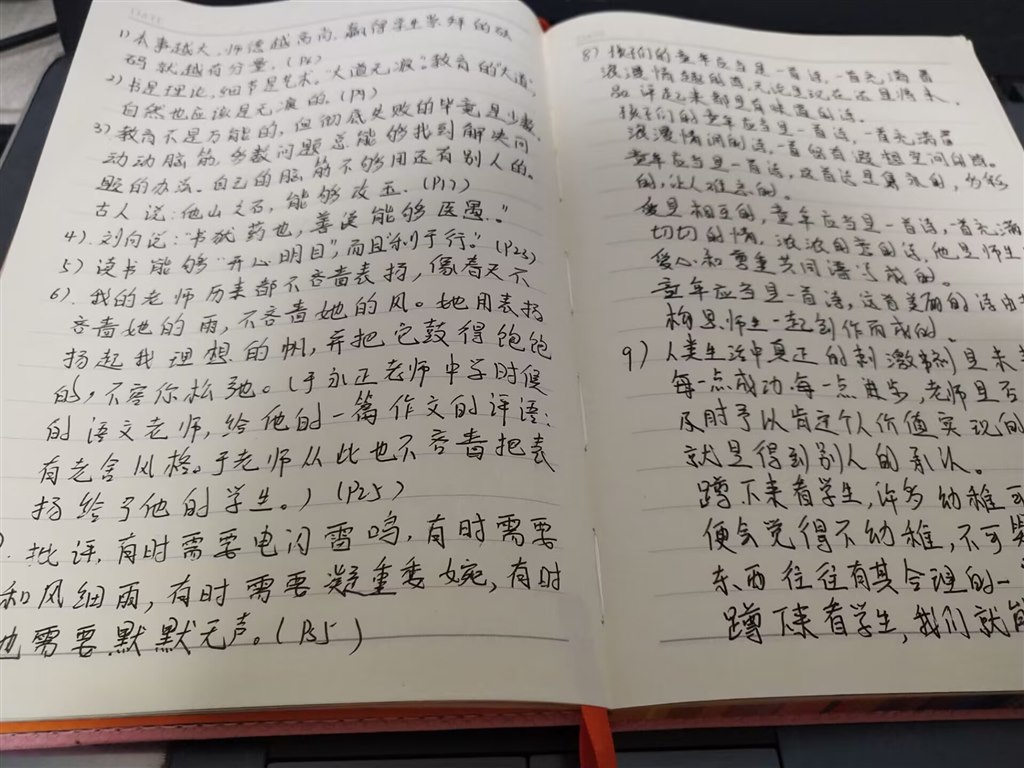 1) 本事越大,师德越高尚,赢得学生崇拜的砝
码就越有分量。(P6)
2) 书是理论,细节是艺术。"大道无痕"。教育的"大道",
自然也应该是无痕的。(P9)
3) 教育不是万能的,但彻底失败的毕竟是少数,
动动脑筋,多数问题总能够找到解决问
题的办法。自己的脑筋不够用还有别人的。
古人说:他山之石,能够攻玉。(P17)
4) 刘向说:"书犹药也,善读能够医愚。"
5) 读书能够"开心明目",而且"利于行"。(P23)
6) 我的老师历来都不吝啬表扬,像春天不
吝啬她的雨,不吝啬她的风。她用表扬
扬起我理想的帆,并把它鼓得饱饱
的,不容你松弛。(于永正老师中学时候
的语文老师,给他的一篇作文的评语:
有老舍风格。于老师从此也不吝啬把表
扬给了他的学生。)(P25)
). 批评,有时需要电闪雷鸣,有时需要
和风细雨,有时需要凝重委婉,有时
也需要默默无声。(P35)
8) 孩们的童年应当是一首诗,一首充满着
浪漫情趣的诗,无论是现在还是将来,
品评起来都是有味道的诗。
孩子们的童年应当是一首诗,一首充满着
浪漫情调的诗,一首给有遐想空间的诗。
童年应当是一首诗,这首诗是隽永的,
的,让人难忘的。
爱是相互的,童年应当是一首诗,一首充满
切切的情,浓浓的意的诗,他是师生
爱心和尊重共同谱写成的。
童年应当是一首诗,这首美丽的诗由
构思,师生一起创作而成的。
9) 人类生活中真正的刺激剂是未
每一点成功,每一点进步,老师是否
及时予以肯定个人价值实现的
就是得到别人的承认。
蹲下来看学生,许多幼稚可
便会觉得不幼稚,不可笑
东西往往有其合理的一
蹲下来看学生,我们就能